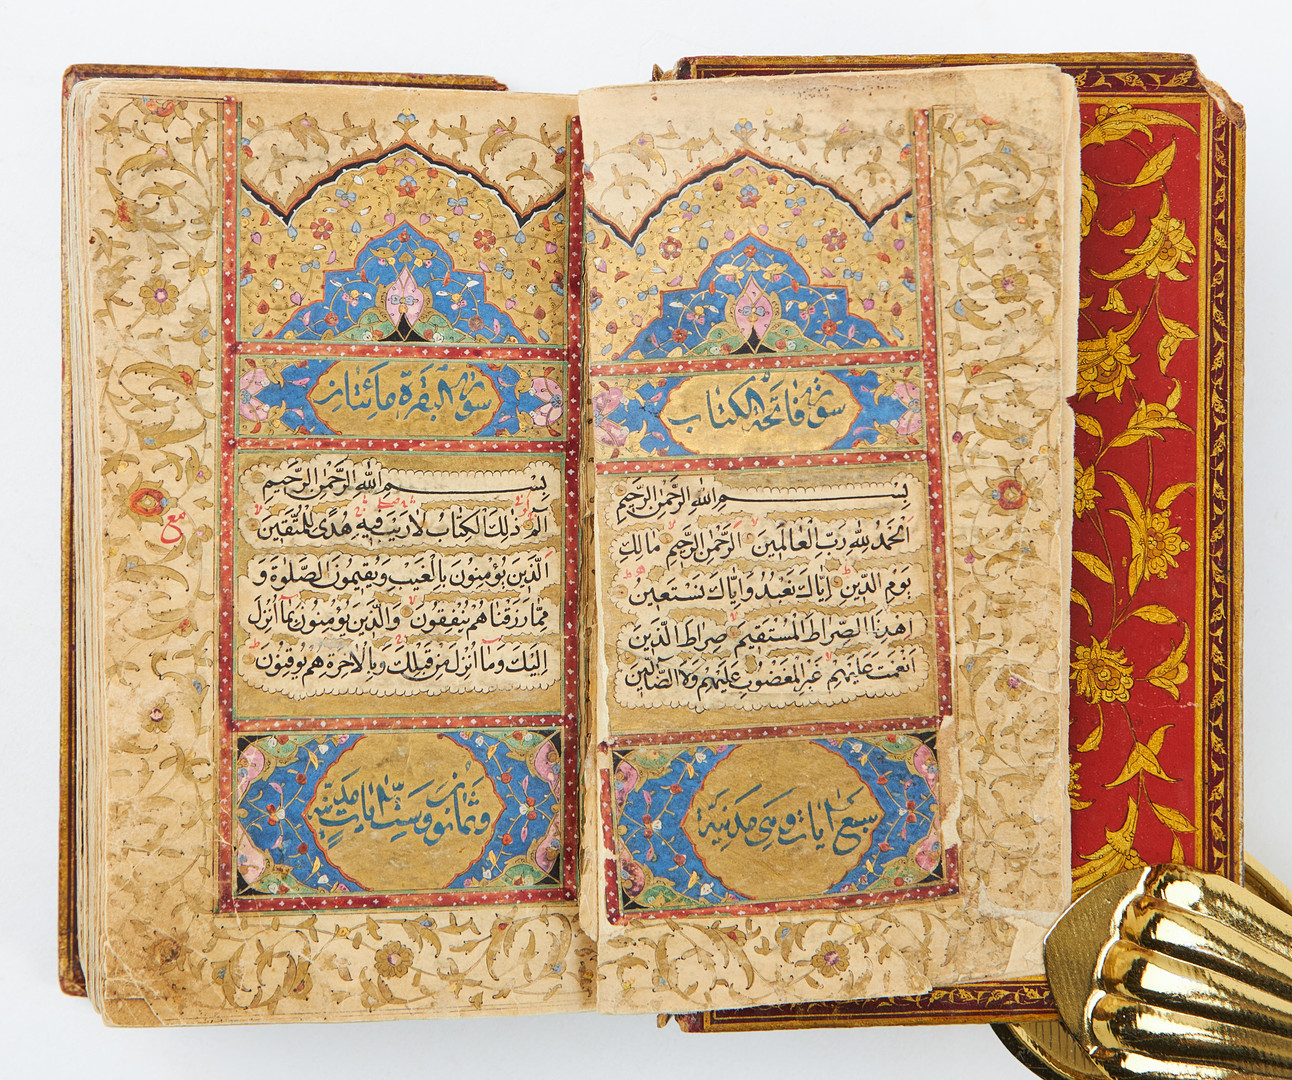 سورة فاتحة الكتاب
بِسْمِ اللهِ الرَّحْمٰنِ الرَّحِيمِ
اَلْحَمْدُ لِلّٰهِ رَبِّ الْعَالَمِينَ اَلرَّحْمٰنِ الرَّحِيمِ مَالِكِ
يَوْمِ الدِّينِ اِيَّاكَ نَعْبُدُ وَاِيَّاكَ نَسْتَعِينُ
اِهْدِنَا الصِّرَاطَ الْمُسْتَقِيمَ صِرَاطَ الَّذِينَ
اَنْعَمْتَ عَلَيْهِمْ غَيْرِ الْمَغْضُوبِ عَلَيْهِمْ وَلَا الضَّالِّينَ
سبع ايات وهى مدنية
سورة البقرة مائتان
بِسْمِ اللهِ الرَّحْمٰنِ الرَّحِيمِ
الٓمٓ ذٰلِكَ الْكِتَابُ لَا رَيْبَ فِيهِ هُدًى لِلْمُتَّقِينَ
اَلَّذِينَ يُؤْمِنُونَ بِالْغَيْبِ وَيُقِيمُونَ الصَّلٰوةَ وَ
مِمَّا رَزَقْنَاهُمْ يُنْفِقُونَ وَالَّذِينَ يُؤْمِنُونَ بِمَا اُنْزِلَ
اِلَيْكَ وَمَا اُنْزِلَ مِنْ قَبْلِكَ وَبِالْاٰخِرَةِ هُمْ يُوقِنُونَ
وثمانون وست ايات مدنية
مع